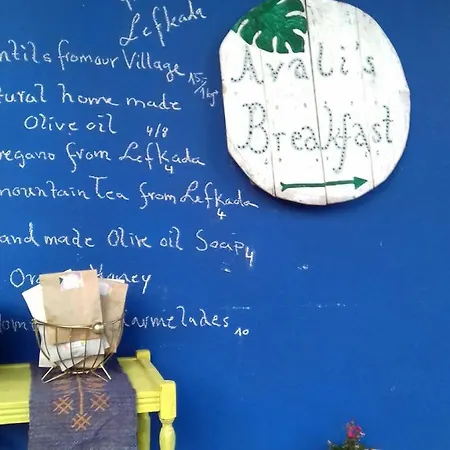 Lefkada
ntils from our Village 15/1kg
tural home made
Olive oil 4/8
regano from Lefkada 4
mountain Tea from Lefkada 4
and made Olive oil Soap 4
Or Honey
marmelades 10
Avali's
Breakfast